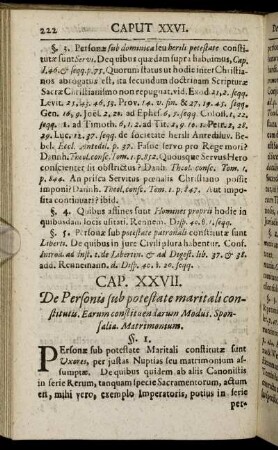 222 CAPUT XXVI.
§. 3. Personæ sub dominica seu herili potestate consti-
tutæ sunt Servi. De quibus quædam supra habuimus, Cap.
1.46. & seqq. p. 75. Quorum status ut hodie inter Christia-
nos abrogatus est, ita secundum doctrinam Scripturæ
Sacræ Christianismo non repugnat, vid. Exod. 21, 2. seqq.
Levit. 25, 45. 46. 55. Prov. 14. v. fin. & 27, 19. 45. seqq.
Gen. 16, 9. Joël. 2, 20. ad Ephes. 6, 5. seqq. Coloss. 1, 22.
seqq. II. ad Timoth. 6, 1. 2. ad Tit. 1, 9. 10. 1. Petr. 2, 18.
29. Luc. 12, 37. seqq. de societate herili Antediluv. He-
bel. Eccl. Antedil. p. 37. Fasne servo pro Rege mori?
Danih. Theol. consc. Tom. 1. p. 852. Quousque Servus Hero
consciente sit obstrictus? Danih. Theol. consc. Tom. 1.
p. 844. An prisca Servitus penalis Christiano possit
imponi? Danih. Theol. consc. Tom. 1. p. 847. Aut impo-
sita continuari? ibid.
§. 4. Quibus affines sunt Homines proprii hodie in
quibusdam locis usitati. Rennem. Disp. 40. 6. 1. seqq.
§. 5. Personæ sub potestate patronali constitutæ sunt
Liberti. De quibus in jure Civili plura habentur. Conf.
Introd. ad Inst. t. de Libertin. & ad Digest. lib. 37. & 38.
add. Rennemann. d. Disp. 40. b. 20. seqq.
CAP. XXVII.
De Personis sub potestate maritali con-
stitutis. Earum constituendarum Modus. Spon-
salia. Matrimonium.
§. 1.
Personæ sub potestate Maritali constitutæ sunt
Uxores, per justas Nuptias seu matrimonium as-
sumptæ. De quibus quidem ab aliis Canonistis
in serie Rerum, tanquam specie Sacramentorum, actum
est, mihi vero, exemplo Imperatoris, potius in serie
per-